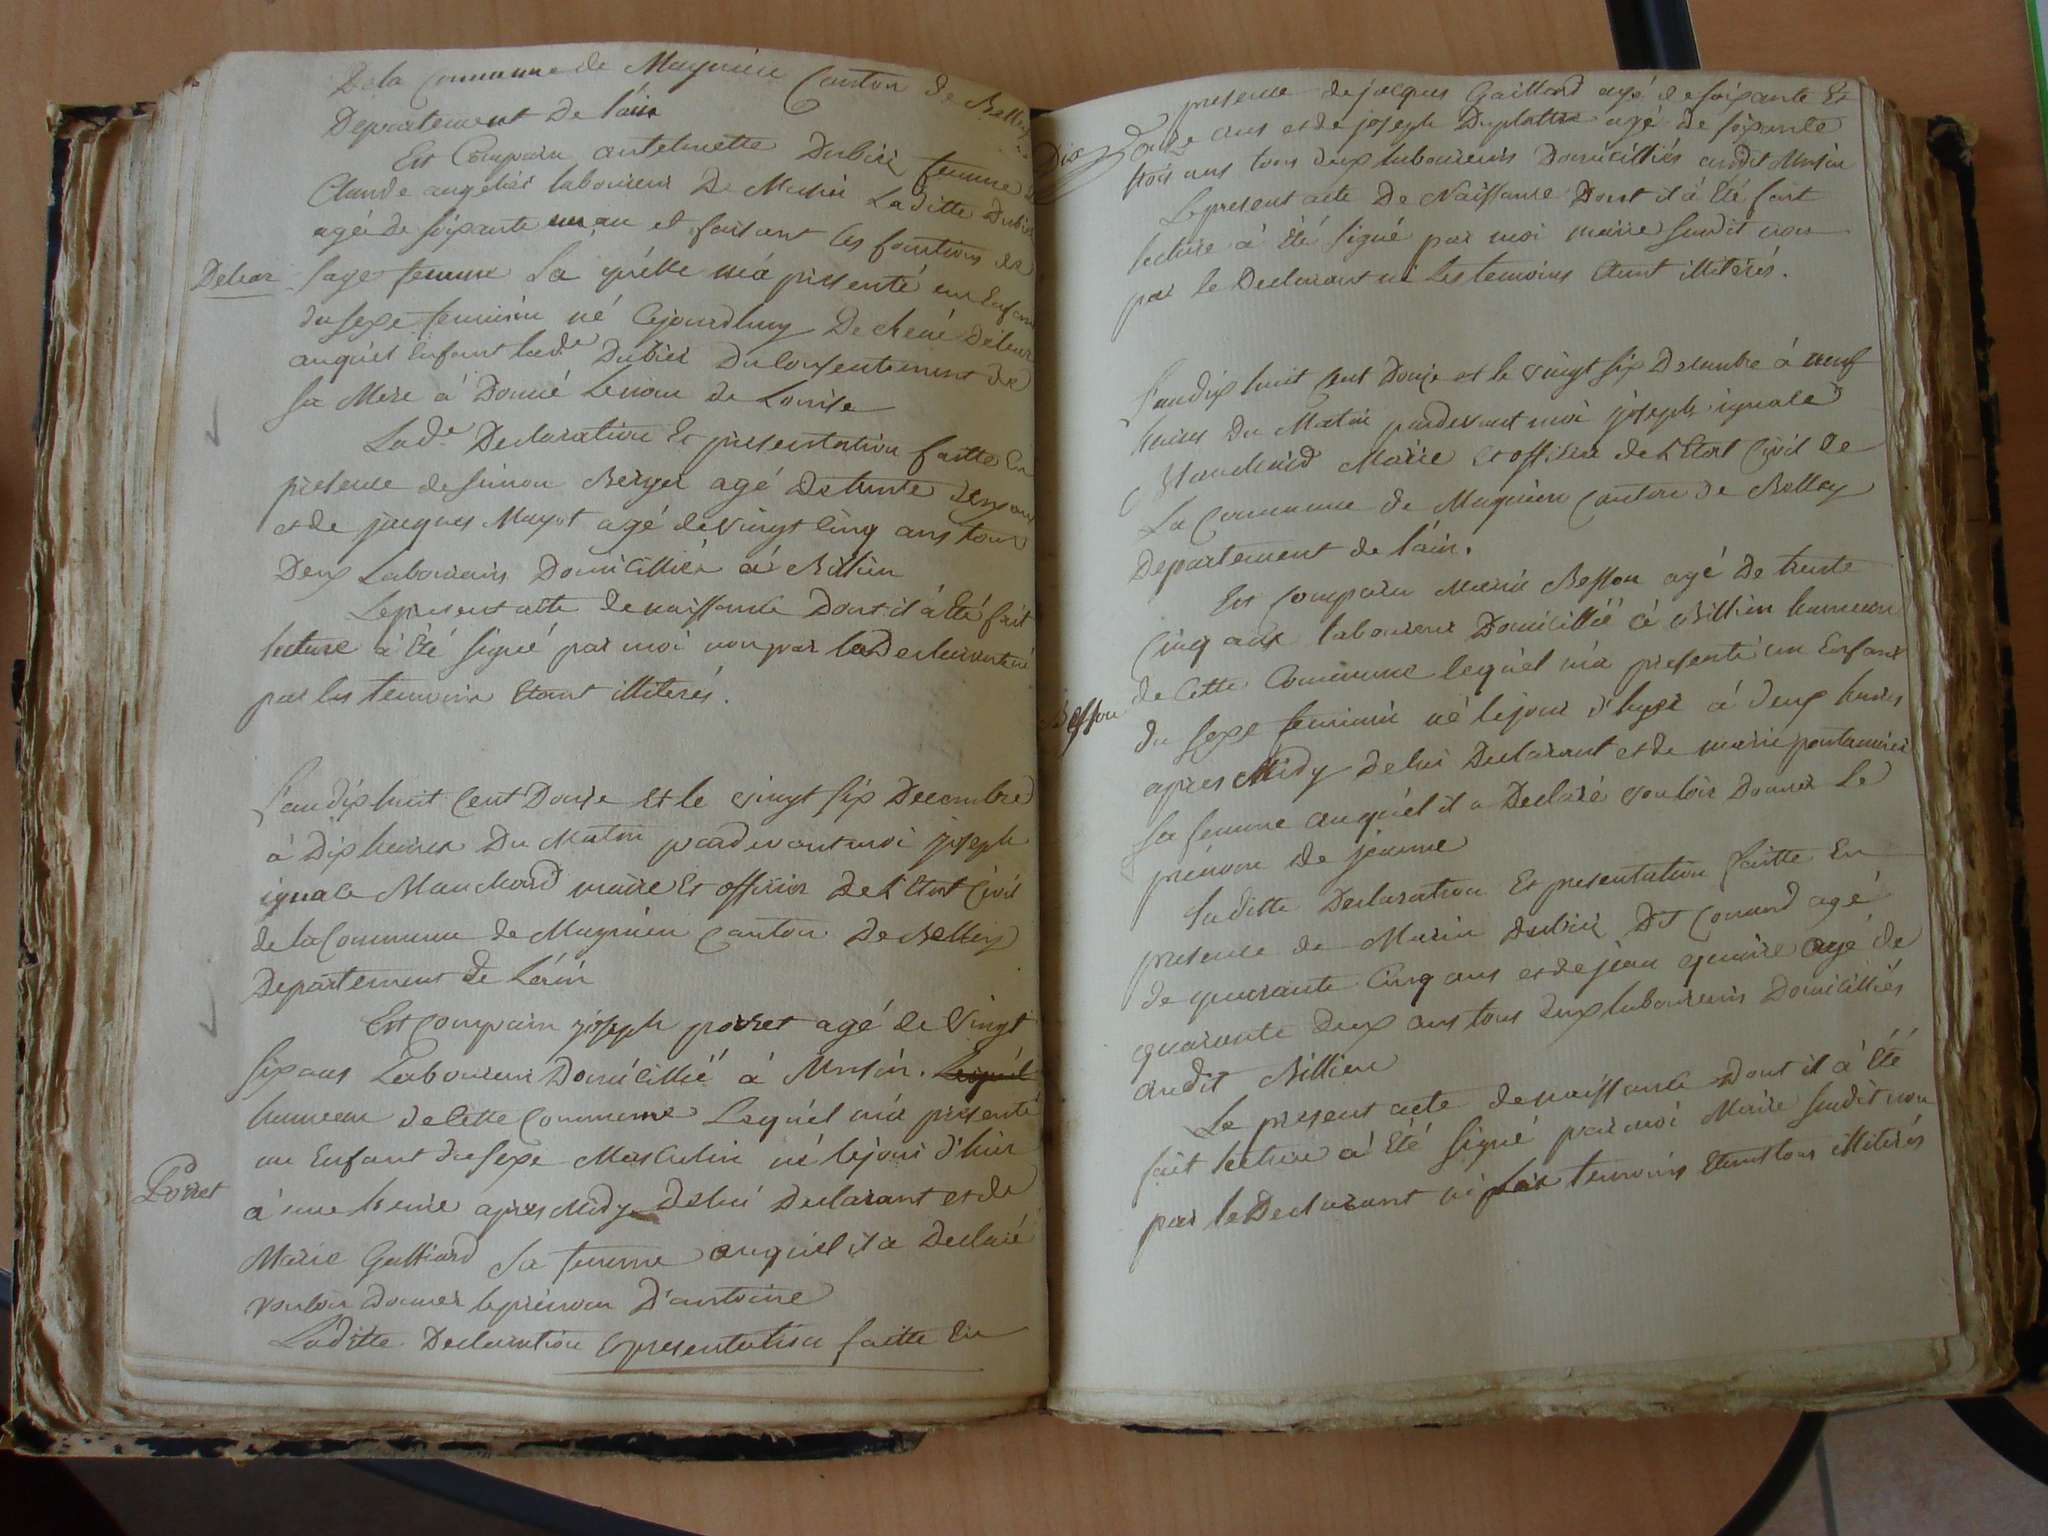 De la Commune de Magnieu Canton de Belley
Departement De l'ain
Est Comparu antelmette Dubiez femme de
Claude angelier laboureur De Musin Laditte Dubiez
agée de soixante un an et faisant les fonctions de
sage femme La qu'elle m'a presenté un Enfant
du sexe feminin né Cejourdhuy De Renée
auquel Enfant lad.e Dubiez Du Consentement de
sa Mere à Donné Lenom de Louise
Lad.e Declaration Et presentation faitte En
presence de simon Berger agé De trente deux ans
et de jacques Mayot agé de vingt Cinq ans tous
Deux Laboureurs Domicilliés à Billieu
Le present acte de naissance Dont il à Eté fait
lecture à Eté signé par moi non par la Declarante ni
par les temoins Etant illiterés.
L'an dix huit Cent Douze Et le vingt six Decembre
à Dix heures Du Matin pardevant moi joseph
ignace Manchard maire Et officier De L'Etat Civil
de la Commune de Magnieu Canton De Belley
Departement de L'ain
Est Comparu joseph poiret agé de Vingt
six ans Laboureur Domicillié à Musin. Lequel
hameau de Cette Commune Lequ'el m'a presenté
un Enfant du sexe Masculin né le jour d'hier
Poiret
à une heure apres Midy de lui Declarant et de
Marie Galliard sa femme auqu'el il a Declaré
vouloir donner le prénom D'antoine
Laditte Declaration Et presentation faitte En
presence de jacques Gaillard agé de soixante Et
Douze ans et de joseph Duplatre agé de soixante
trois ans tous deux laboureurs Domicilliés audit Musin
Le present acte De Naissance Dont il à Eté fait
lecture à Eté signé par moi maire susdit non
par le Declarant ni Les temoins Etant illiterés.
L'an dix huit Cent Douze et le vingt six Decembre à neuf
heures Du Matin pardevant moi joseph ignace
Manchard Maire Et officier de L'Etat Civil de
La Commune de Magnieu Canton de Belley
Departement de l'ain.
Est Comparu Marin Besson agé De trente
Cinq ans laboureur Domicillié à Billieu hameau
de Cette Commune lequ'el m'a presenté un Enfant
Besson
du sexe feminin né le jour d'hyer à deux heures
apres Midy de lui Declarant et de marie
sa femme auqu'el il a Declaré vouloir Donner Le
prénom de jeanne
Laditte Declaration Et presentation faitte En
presence de Marin Dubiez Dit agé
de quarante Cinq ans et de jean agé de
quarante deux ans tous deux laboureurs Domicilliés
audit Billieu
Le present acte de naissance Dont il à Eté
fait lecture à Eté signé par moi Maire susdit non
par le Declarant ni par les temoins Etant tous illiterés